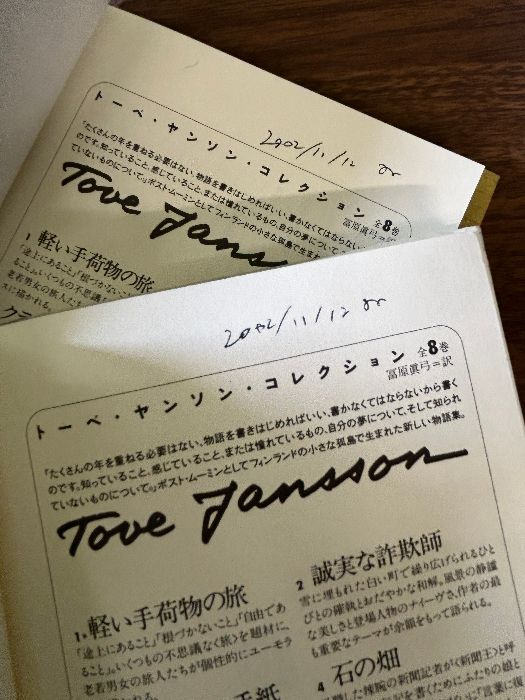 2002/11/12
トーベ・ヤンソン・コレクション 全8巻
冨原眞弓=訳
「たくさんの年を重ねる必要はない、物語を書きはじめればいい、書かなくてはならない
のです。知っていること、感じていること、または憧れているもの、自分の夢について
ていないものについて」。ポスト・ムーミンとしてフィンランドの小さな孤島で生まれ
Tove Jans
1 軽い手荷物の旅
「途上にあること」「根づかないこと」
ること」。いくつもの不思議な
老若男女の旅人たち
スに描かれる。
2002/11/12
トーベ・ヤンソン・コレクション 全8巻
冨原眞弓=訳
「たくさんの年を重ねる必要はない、物語を書きはじめればいい、書かなくてはならないから書く
のです。知っていること、感じていること、または憧れているもの、自分の夢について、そして知られ
ていないものについて」。ポスト・ムーミンとしてフィンランドの小さな孤島で生まれた新しい物語集。
Tove Jansson
1 軽い手荷物の旅
「途上にあること」「根づかないこと」「自由であ
ること」。いくつもの不思議な〈旅〉を題材に、
老若男女の旅人たちが個性的にユーモラ
2 誠実な詐欺師
雪に埋もれた白い町で繰り広げられるひと
びとの確執とおだやかな和解。風景の静謐
な美しさと登場人物のナイーヴさ、作者の最
も重要なテーマが余韻をもって語られる。
手紙
4 石の畑
腕の新聞記者が〈新聞王〉と呼